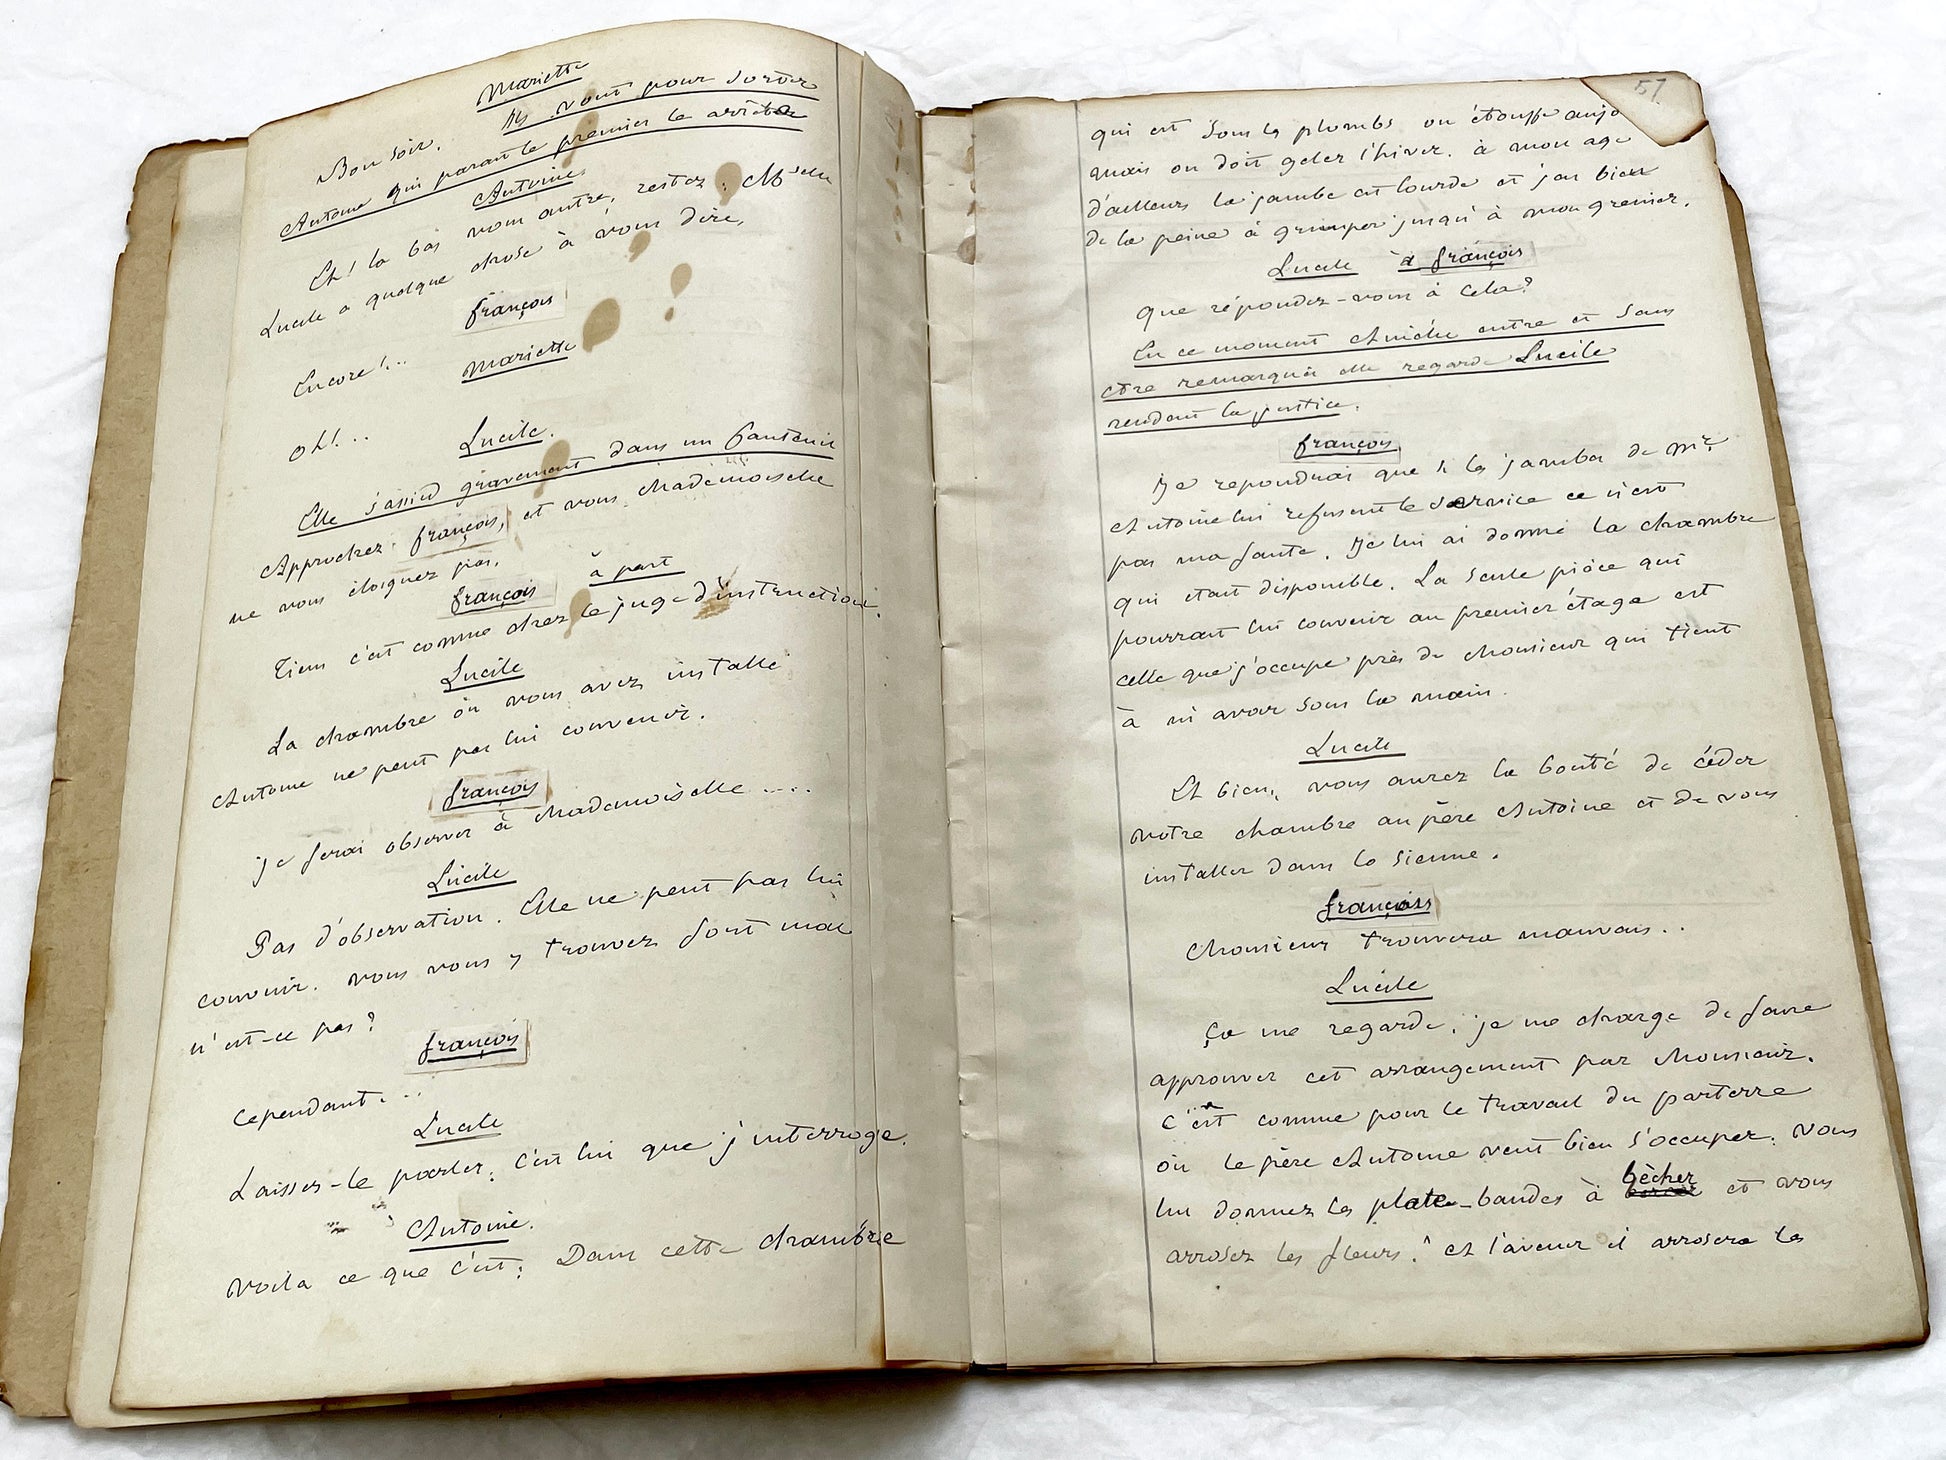 Mariette
Bon soir. Ils vont pour sortir
Antoine qui parait le premier les arrête
Antoine
Eh! la bas vous autre, restez, Mselle
Lucile a quelque chose à vous dire,
françois
Encore!..
Mariette
Oh!...
Lucile.
Elle s'assied gravement dans un fauteuil
Approchez françois, et vous Mademoiselle
ne vous éloignez pas.
françois à part
Tiens c'est comme chez le juge d'instruction.
Lucile
La chambre où vous avez installé
Antoine ne peut pas lui convenir.
françois
Je ferai observer à Mademoiselle .....
Lucile
Pas d'observation. Elle ne peut pas lui
convenir. vous vous y trouvez fort mal
n'est-ce pas?
françois
Cependant...
Lucile
Laissez-le parler, c'est lui que j'interroge.
Antoine.
Voila ce que c'est; Dans cette chambre
57
qui est sous les plombs on étouffe aujo
mais on doit geler l'hiver. à mon age
d'ailleurs la jambe est lourde et j'ai bien
de la peine à grimper jusqu'à mon grenier.
Lucile à françois
Que répondez-vous à cela?
En ce moment Amélie entre et sans
être remarquée elle regarde Lucile
rendant la justice.
françois
Je repondrai que si les jambes de Mr
Antoine lui refusent le service ce n'est
pas ma faute. Je lui ai donné la chambre
qui etait disponible. La seule pièce qui
pourrait lui convenir au premier étage est
celle que j'occupe près de Monsieur qui tient
à m'avoir sous la main.
Lucile
Eh bien, vous aurez la bonté de céder
votre chambre au père Antoine et de vous
installer dans la sienne.
françois
Monsieur trouvera mauvais..
Lucile
Ça me regarde, je me charge de faire
approuver cet arrangement par Monsieur.
C'est comme pour le travail du parterre
où le père Antoine veut bien s'occuper. Vous
lui donnez les plate-bandes à bêcher et vous
arrosez les fleurs. à l'avenir il arrosera les